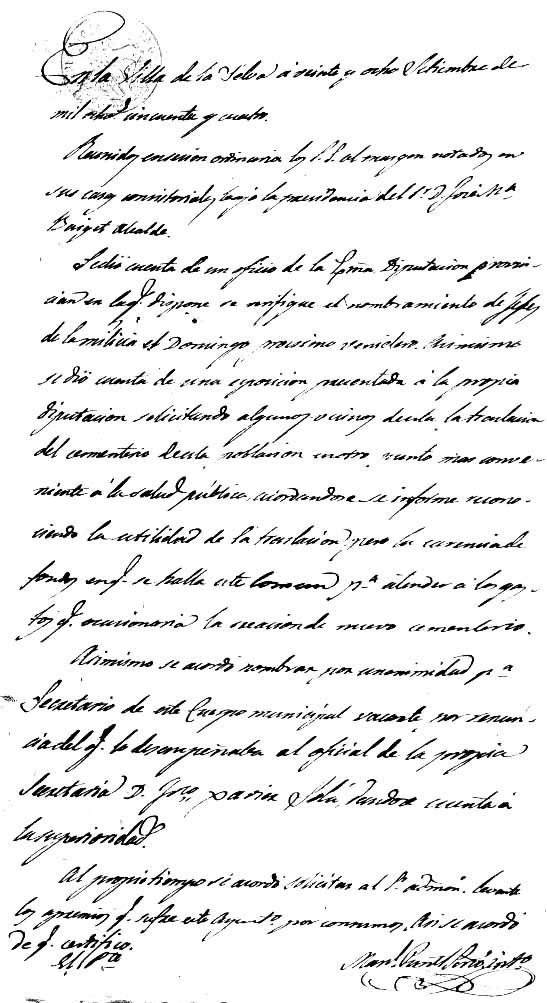 En la Villa de la Selva á veinte y ocho Setiembre de
mil ochos cincuenta y cuatro.
Reunidos en sesion ordinaria los S.S. al margen notados en
sus casas consistoriales bajo la presidencia del Sr D. José Ma
Baiget Alcalde.
Se dió cuenta de un oficio de la Exma Diputacion provin-
cial en la q. dispone se verifique el nombramiento de Jefes
de la milicia el Domingo procsimo venidero. Asimismo
se dió cuenta de una esposicion presentada á la propia
diputacion solicitando algunos vecinos de esta la traslacion
del cementerio de esta poblacion en otro punto mas conve-
niente á la salud pública, acordandose se informe recono-
ciendo la utilidad de la traslacion; pero la carencia de
fondos en q. se halla este comun pa atender a los gas-
tos q. ocasionaria la creacion de nuevo cementerio.
Asimismo se acordó nombrar por unanimidad pa
Secretario de este Cuerpo municipal vacante por renun-
cia del q. lo desempeñaba al oficial de la propia
Secretaria D. Franco Xavier Solá, dandose cuenta á
la superioridad.
Al propio tiempo se acordó solicitar al Sr admon. levante
los apremios q. sufre este Ayunto por consumos. Asi se acordó
de q. certifico.
El Pte
Manl